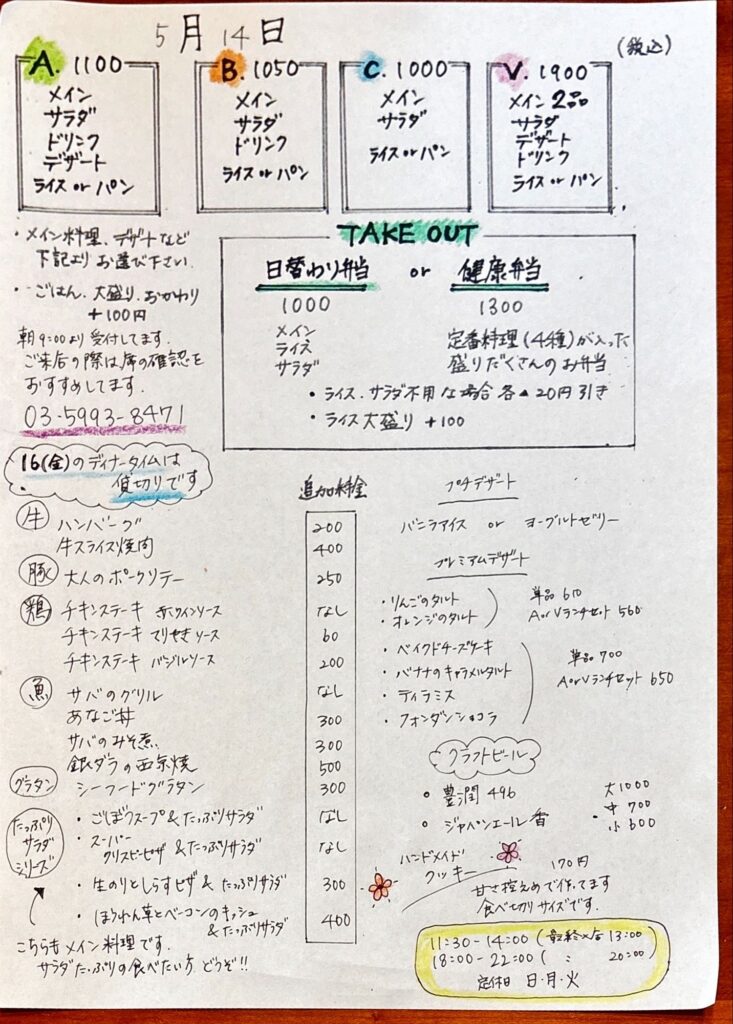 5月14日
(税込)
A. 1100
メイン
サラダ
ドリンク
デザート
ライス or パン
B. 1050
メイン
サラダ
ドリンク
ライス or パン
C. 1000
メイン
サラダ
ライス or パン
V. 1900
メイン 2品
サラダ
デザート
ドリンク
ライス or パン
・メイン料理、デザートなど
下記より お選び下さい
・ごはん、大盛り、おかわり
+100円
朝 9:00より 受付してます。
ご来店の際は席の確認を
おすすめしてます。
03-5993-8471
TAKE OUT
日替わり弁当 or 健康弁当
1000
メイン
ライス
サラダ
1300
定番料理(4種)が入った
盛りだくさんのお弁当
・ライス、サラダ不用な場合 各▲20円引き
・ライス大盛り +100
16(金)のディナータイムは
貸切りです
追加料金
牛 ハンバーグ 200
牛スライス焼肉 400
豚 大人のポークソテー 250
鶏 チキンステーキ 赤ワインソース なし
チキンステーキ てりやきソース 60
チキンステーキ バジルソース 200
魚 サバのグリル なし
あなご丼 300
サバのみそ煮 300
銀ダラの西京焼 500
グラタン シーフードグラタン 300
たっぷり
サラダ
シリーズ
・ごぼうスープ&たっぷりサラダ なし
・スーパー
クリスピーピザ &たっぷりサラダ なし
・生のりとしらすピザ & たっぷりサラダ 300
・ほうれん草とベーコンのキッシュ
&たっぷりサラダ 400
こちらも メイン料理です。
サラダたっぷりの食べたい方 どうぞ!!
プチデザート
バニラアイス or ヨーグルトゼリー
プレミアムデザート
・りんごのタルト
・オレンジのタルト
単品 610
A or Vランチセット 560
・ベイクドチーズケーキ
・バナナのキャラメルタルト
・ティラミス
・フォンダンショコラ
単品 700
A or Vランチセット 650
クラフトビール
・豊潤 496
・ジャペンエール 香
大1000
中 700
小 600
ハンドメイド
クッキー
170円
甘さ控えめで作ってます
食べ切りサイズです。
11:30-14:00 (最終入店 13:00
18:00-22:00 ( : 20:00)
定休日 日・月・火